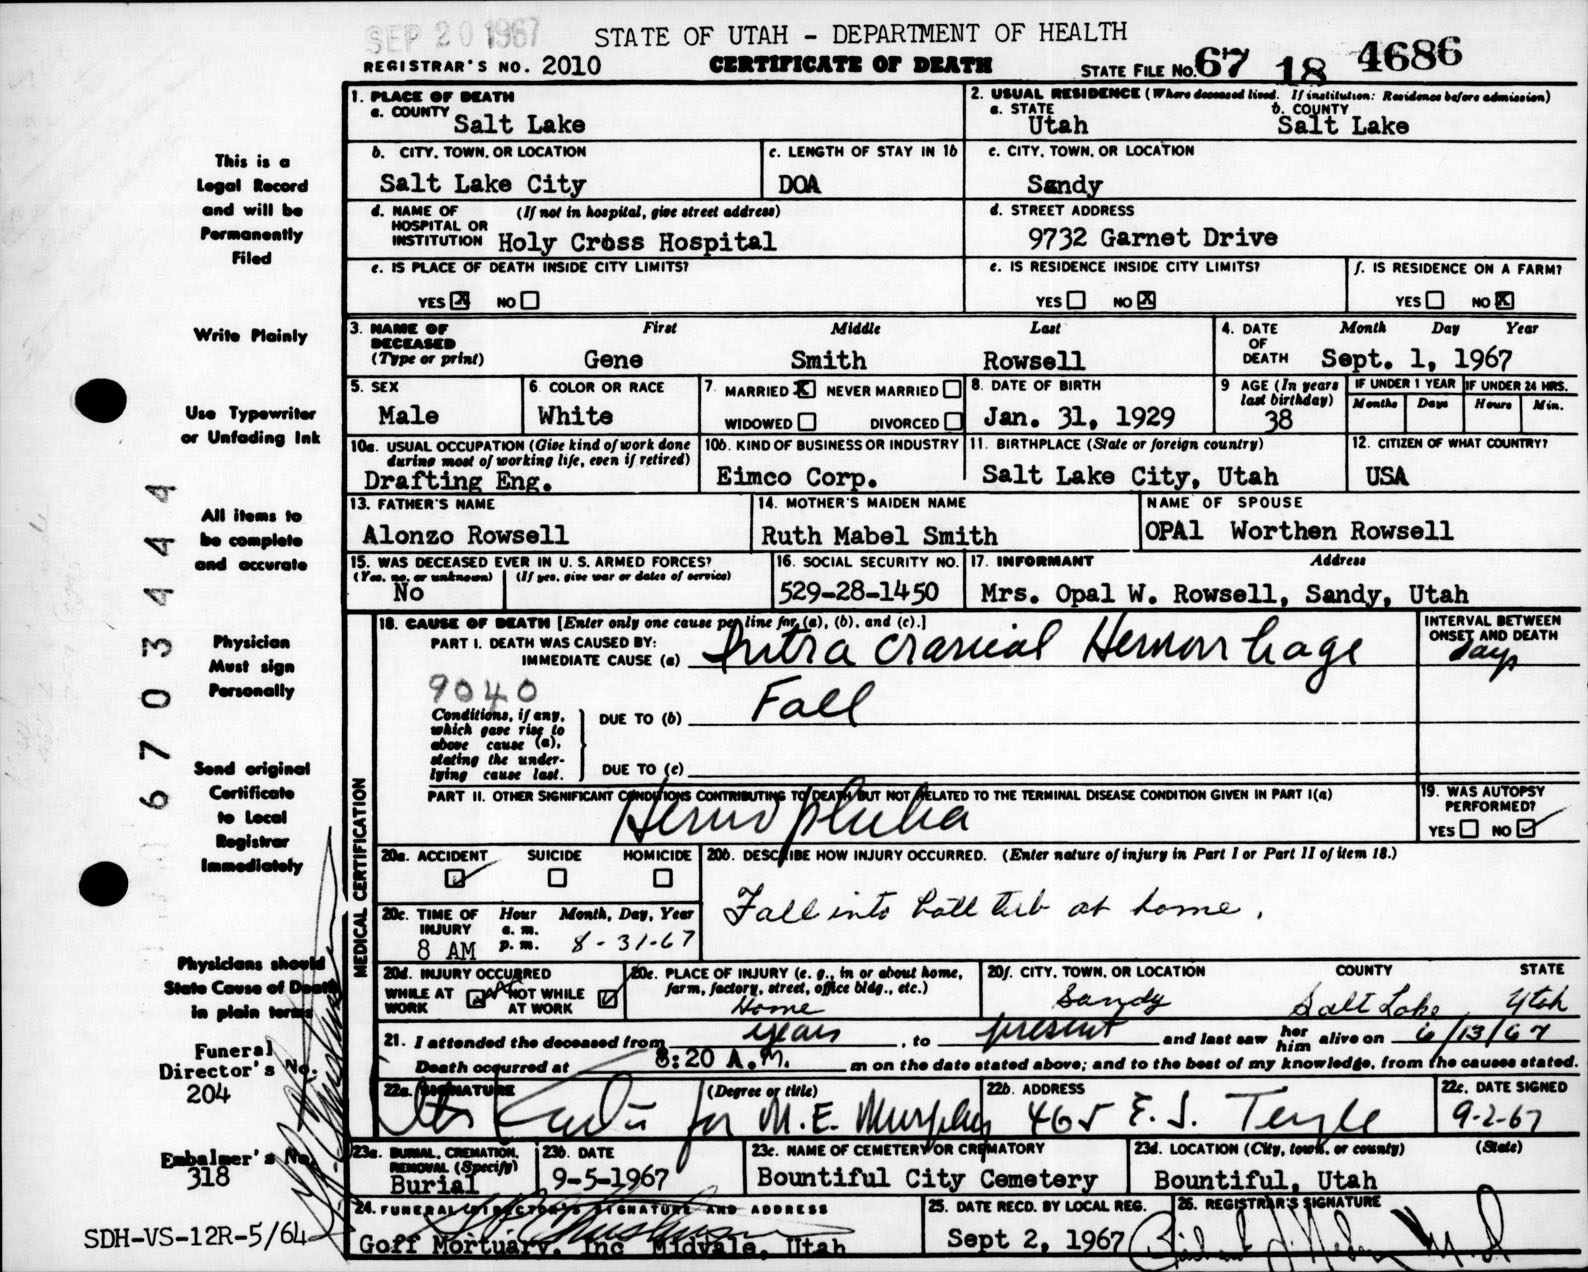 SEP 20 1967
STATE OF UTAH - DEPARTMENT OF HEALTH
REGISTRAR'S NO. 2010
CERTIFICATE OF DEATH
STATE FILE NO. 67 18 4686
This is a
Legal Record
and will be
Permanently
Filed
Write Plainly
Use Typewriter
or Unfading Ink
All items to
be complete
and accurate
Physician
Must sign
Personally
Send original
Certificate
to Local
Registrar
Immediately
Physicians should
State Cause of Death
in plain terms
Funeral
Director's No.
204
Embalmer's No.
318
SDH-VS-12R-5/64
6703444
1. PLACE OF DEATH
a. COUNTY
Salt Lake
2. USUAL RESIDENCE (Where deceased lived. If institution: Residence before admission)
a. STATE b. COUNTY
Utah Salt Lake
b. CITY, TOWN, OR LOCATION
Salt Lake City
c. LENGTH OF STAY IN 1b
DOA
c. CITY, TOWN, OR LOCATION
Sandy
d. NAME OF (If not in hospital, give street address)
HOSPITAL OR
INSTITUTION Holy Cross Hospital
d. STREET ADDRESS
9732 Garnet Drive
e. IS PLACE OF DEATH INSIDE CITY LIMITS?
YES X NO
e. IS RESIDENCE INSIDE CITY LIMITS?
YES NO X
f. IS RESIDENCE ON A FARM?
YES NO X
3. NAME OF First Middle Last
DECEASED
(Type or print) Gene Smith Rowsell
4. DATE Month Day Year
OF
DEATH Sept. 1, 1967
5. SEX
Male
6. COLOR OR RACE
White
7. MARRIED X NEVER MARRIED
WIDOWED DIVORCED
8. DATE OF BIRTH
Jan. 31, 1929
9 AGE (In years
last birthday)
38
IF UNDER 1 YEAR IF UNDER 24 HRS.
Months Days Hours Min.
10a. USUAL OCCUPATION (Give kind of work done
during most of working life, even if retired)
Drafting Eng.
10b. KIND OF BUSINESS OR INDUSTRY
Eimco Corp.
11. BIRTHPLACE (State or foreign country)
Salt Lake City, Utah
12. CITIZEN OF WHAT COUNTRY?
USA
13. FATHER'S NAME
Alonzo Rowsell
14. MOTHER'S MAIDEN NAME
Ruth Mabel Smith
NAME OF SPOUSE
OPAl Worthen Rowsell
15. WAS DECEASED EVER IN U. S. ARMED FORCES?
(Yes, no, or unknown) (If yes, give war or dates of service)
No
16. SOCIAL SECURITY NO.
529-28-1450
17. INFORMANT Address
Mrs. Opal W. Rowsell, Sandy, Utah
MEDICAL CERTIFICATION
18. CAUSE OF DEATH [Enter only one cause per line for (a), (b), and (c).]
PART I. DEATH WAS CAUSED BY:
IMMEDIATE CAUSE (a) Intra cranial Hemorrhage
INTERVAL BETWEEN
ONSET AND DEATH
days
9040
Conditions, if any,
which gave rise to
above cause (a),
stating the under-
lying cause last.
DUE TO (b) Fall
DUE TO (c)
PART II. OTHER SIGNIFICANT CONDITIONS CONTRIBUTING TO DEATH BUT NOT RELATED TO THE TERMINAL DISEASE CONDITION GIVEN IN PART I(a)
Hemophilia
19. WAS AUTOPSY
PERFORMED?
YES NO ✓
20a. ACCIDENT SUICIDE HOMICIDE
✓
20b. DESCRIBE HOW INJURY OCCURRED. (Enter nature of injury in Part I or Part II of item 18.)
Fall into bath tub at home.
20c. TIME OF Hour Month, Day, Year
INJURY a. m.
8 AM p. m. 8-31-67
20d. INJURY OCCURRED
WHILE AT NOT WHILE
WORK AT WORK
20e. PLACE OF INJURY (e. g., in or about home,
farm, factory, street, office bldg., etc.)
Home
20f. CITY, TOWN, OR LOCATION COUNTY STATE
Sandy Salt Lake Utah
21. I attended the deceased from years, to present and last saw her him alive on 6/13/67
Death occurred at 8:20 A.M. m on the date stated above; and to the best of my knowledge, from the causes stated.
22a. SIGNATURE (Degree or title)
for M. E. Murphy
22b. ADDRESS
465 E. S. Temple
22c. DATE SIGNED
9-2-67
23a. BURIAL, CREMATION,
REMOVAL (Specify)
Burial
23b. DATE
9-5-1967
23c. NAME OF CEMETERY OR CREMATORY
Bountiful City Cemetery
23d. LOCATION (City, town, or county) (State)
Bountiful, Utah
24. FUNERAL DIRECTOR'S SIGNATURE AND ADDRESS
Goff Mortuary, Inc Midvale, Utah
25. DATE RECD. BY LOCAL REG.
Sept 2, 1967
26. REGISTRAR'S SIGNATURE